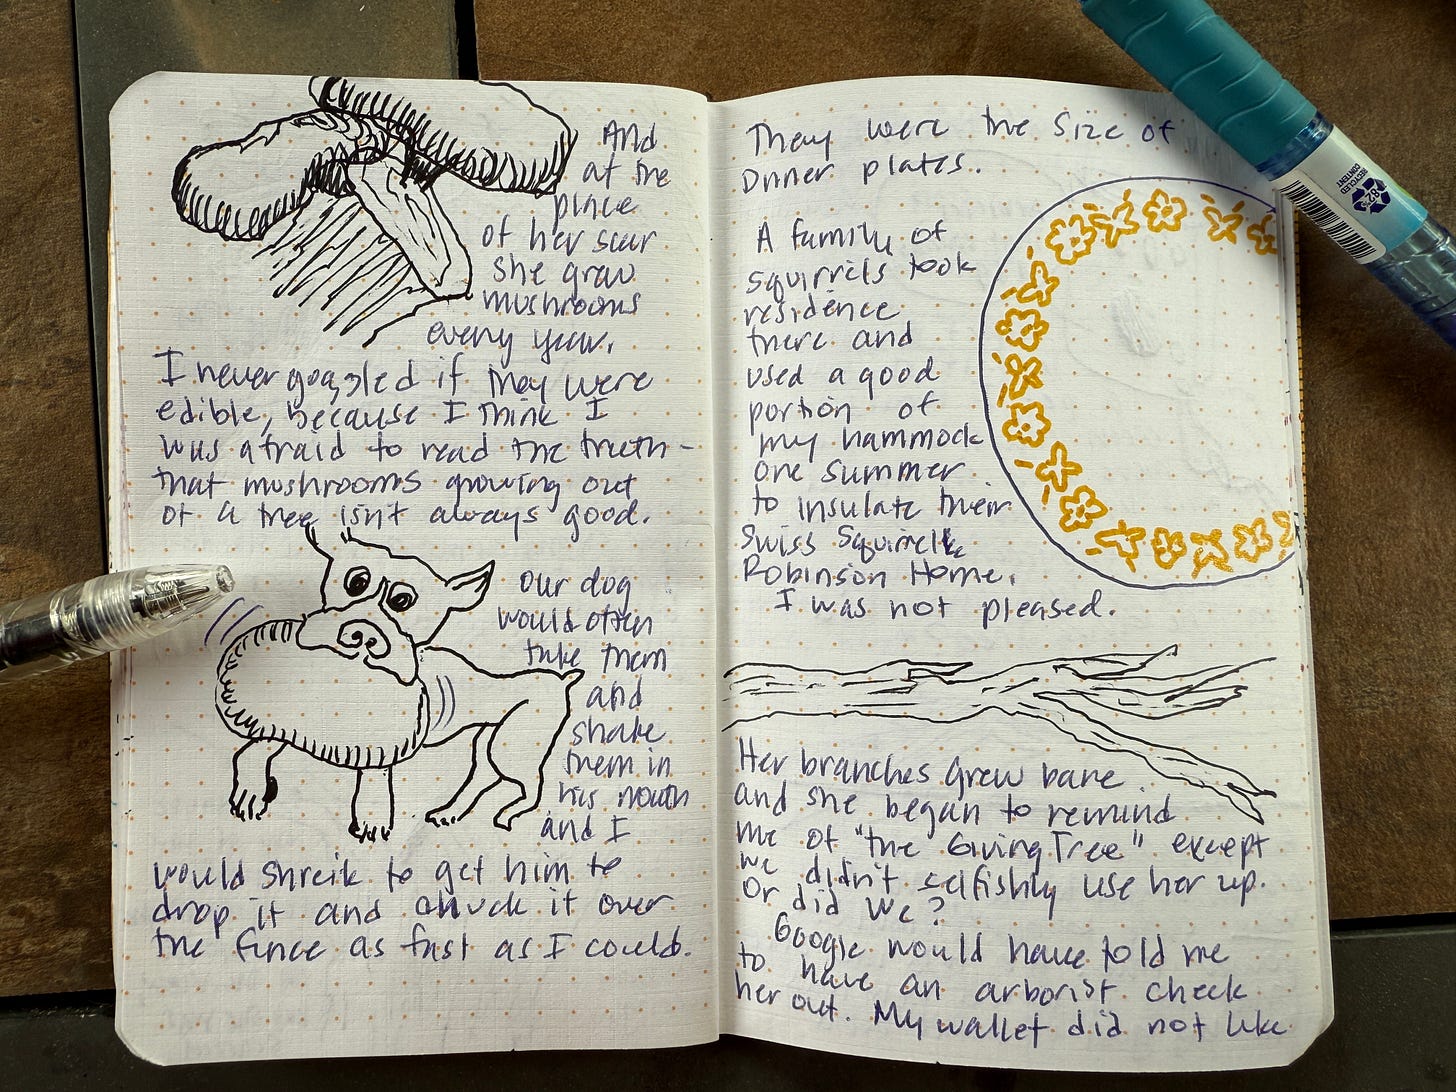 And
at the
place
of her scar
she grew
mushrooms
every year.
I never googled if they were
edible, because I think I
was afraid to read the truth -
that mushrooms growing out
of a tree isn't always good.
Our dog
would often
take them
and
shake
them in
his mouth
and I
would shreik to get him to
drop it and chuck it over
the fence as fast as I could.
They were the size of
Dinner plates.
A family of
squirrels took
residence
there and
used a good
portion of
my hammock
one summer
to insulate their
Swiss Squirrel
Robinson Home.
I was not pleased.
Her branches grew bare
and she began to remind
me of "the Giving Tree" except
we didn't selfishly use her up.
Or did we?
Google would have told me
to have an arborist check
her out. My wallet did not like
78%
RECYCLED
CONTENT